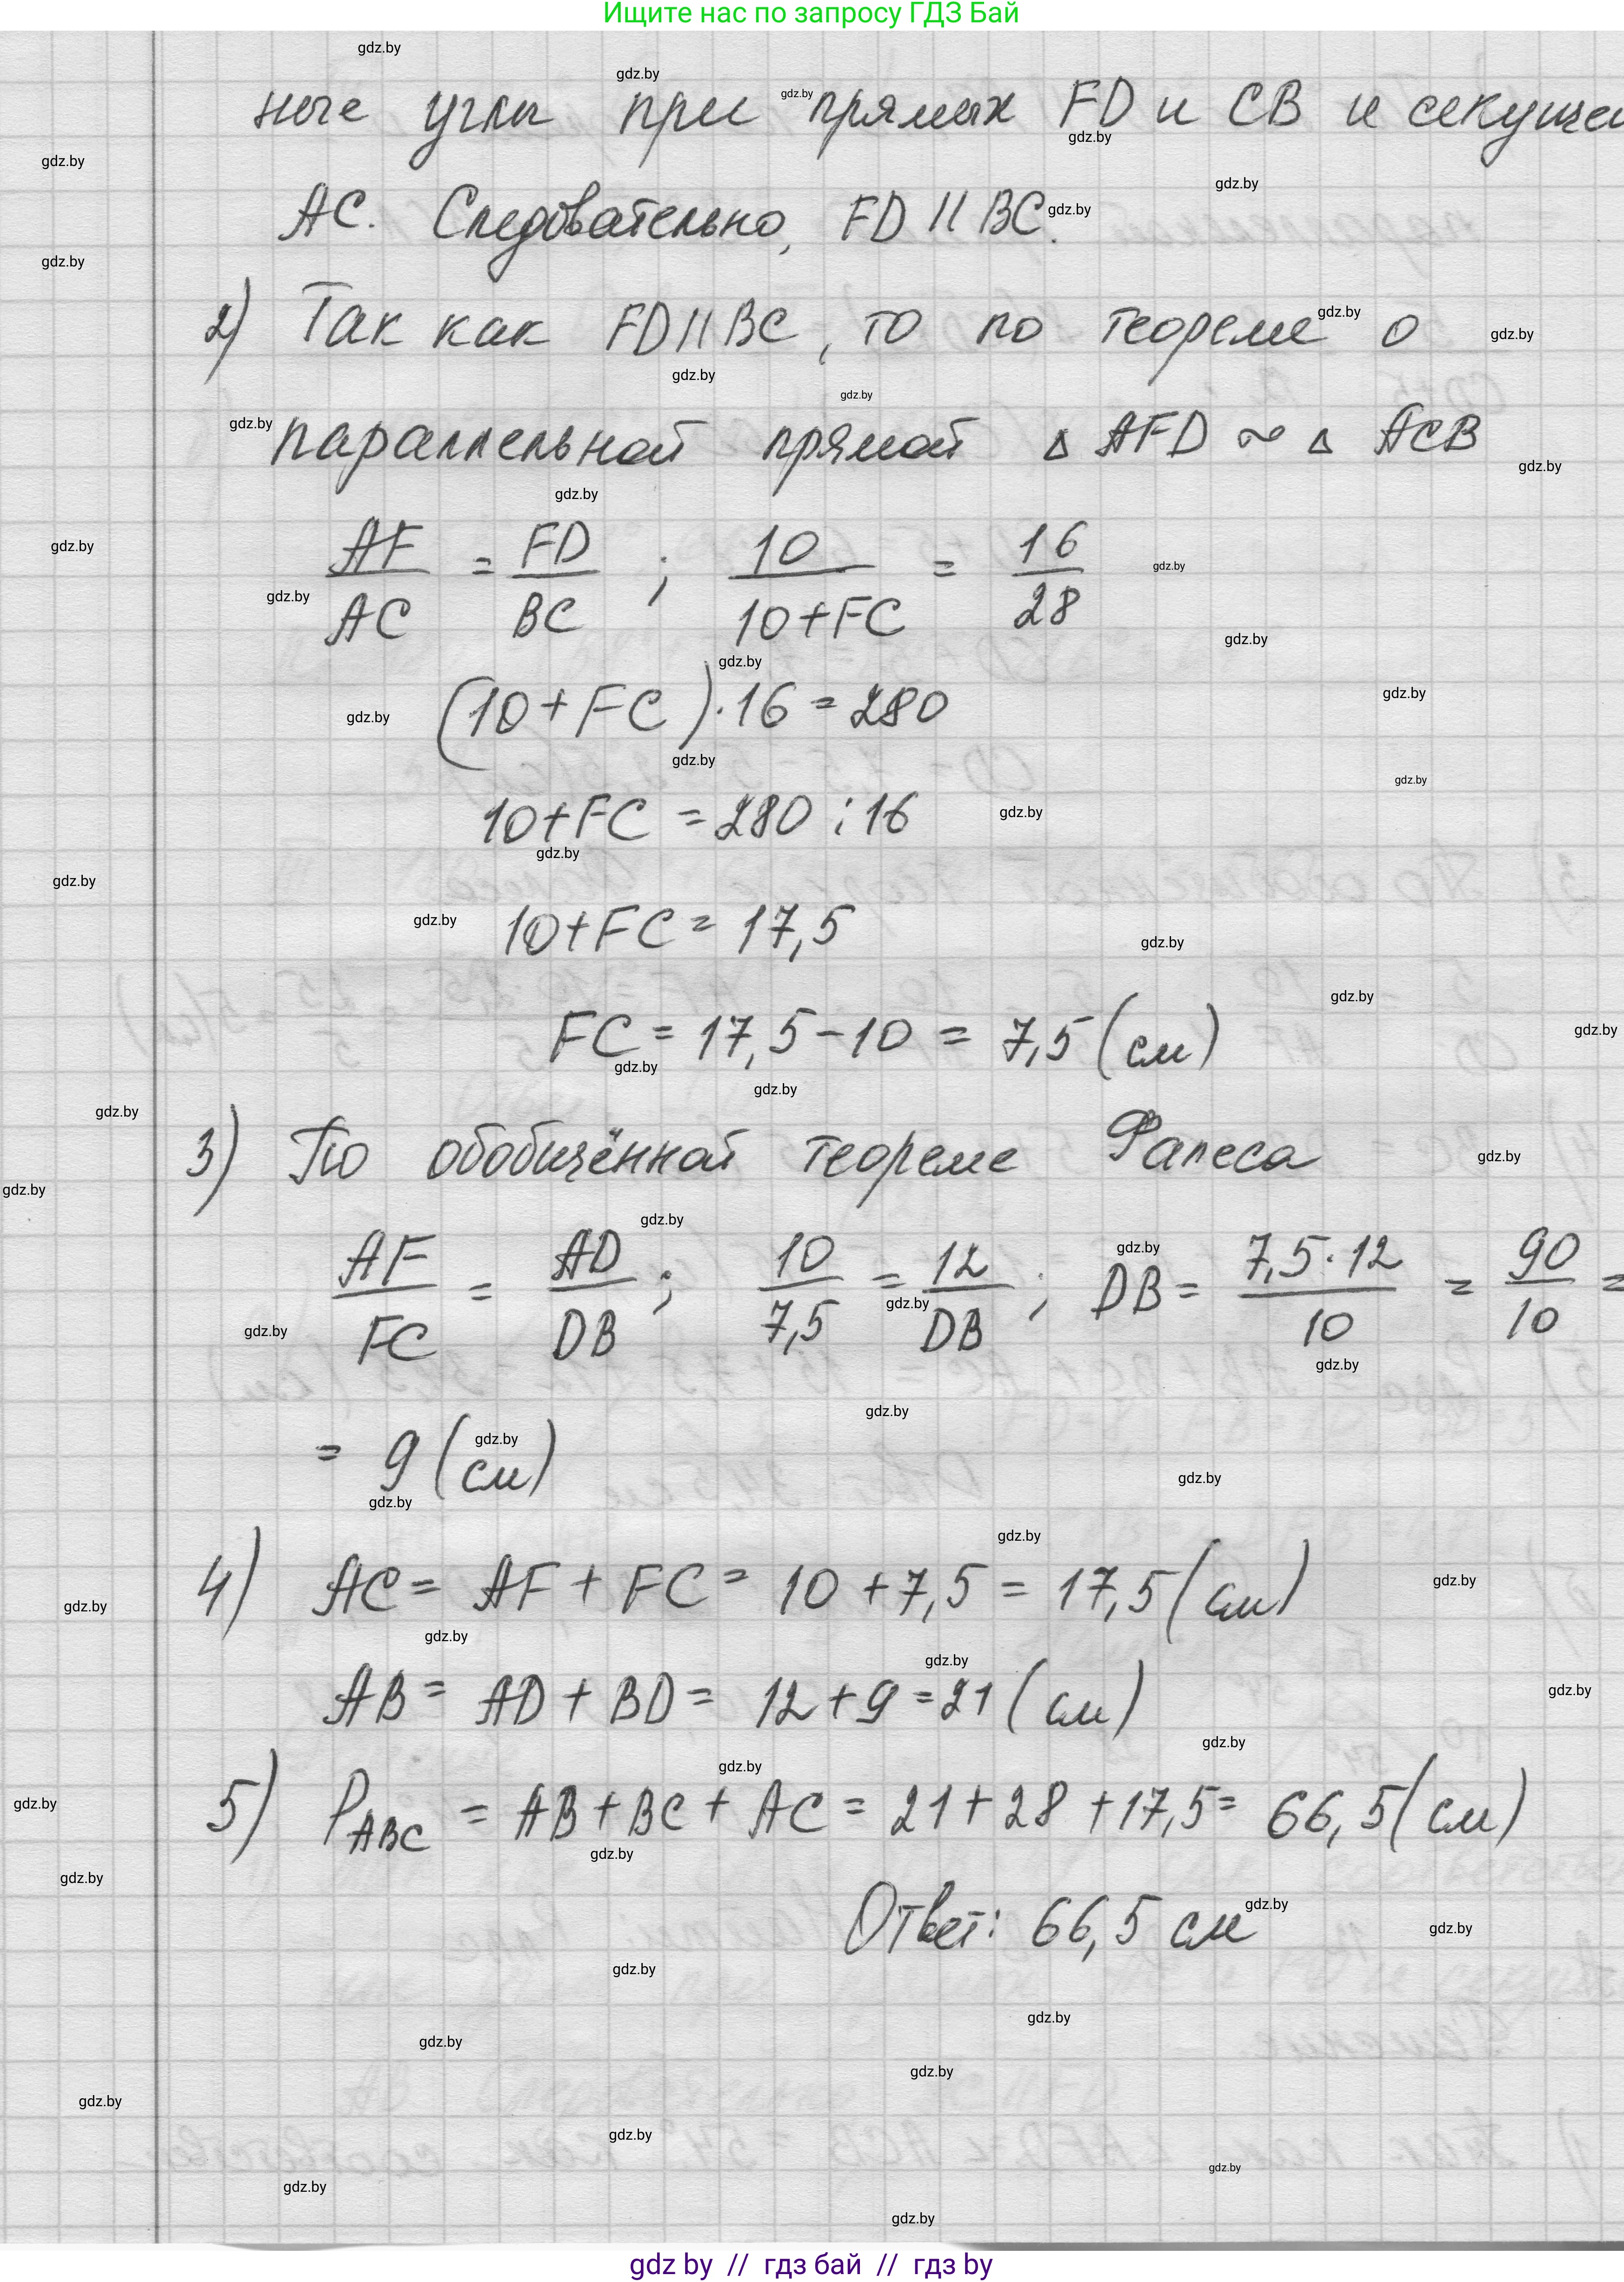 Ищите нас по запросу ГДЗ Бай
ные углы при прямых FD и CB и секущей
AC. Следовательно, FD || BC.
2) Так как FD || BC, то по теореме о
параллельной прямой Δ AFD ~ Δ ACB
AF/AC = FD/BC ; 10/(10+FC) = 16/28
(10+FC)·16 = 280
10+FC = 280 : 16
10+FC = 17,5
FC = 17,5 – 10 = 7,5 (см)
3) По обобщённой теореме Фалеса
AF/FC = AD/DB ; 10/7,5 = 12/DB ; DB = 7,5·12/10 = 90/10 =
= 9 (см)
4) AC = AF + FC = 10 + 7,5 = 17,5 (см)
AB = AD + BD = 12 + 9 = 21 (см)
5) P ABC = AB + BC + AC = 21 + 28 + 17,5 = 66,5 (см)
Ответ: 66,5 см
gdz by // гдз бай // гдз by